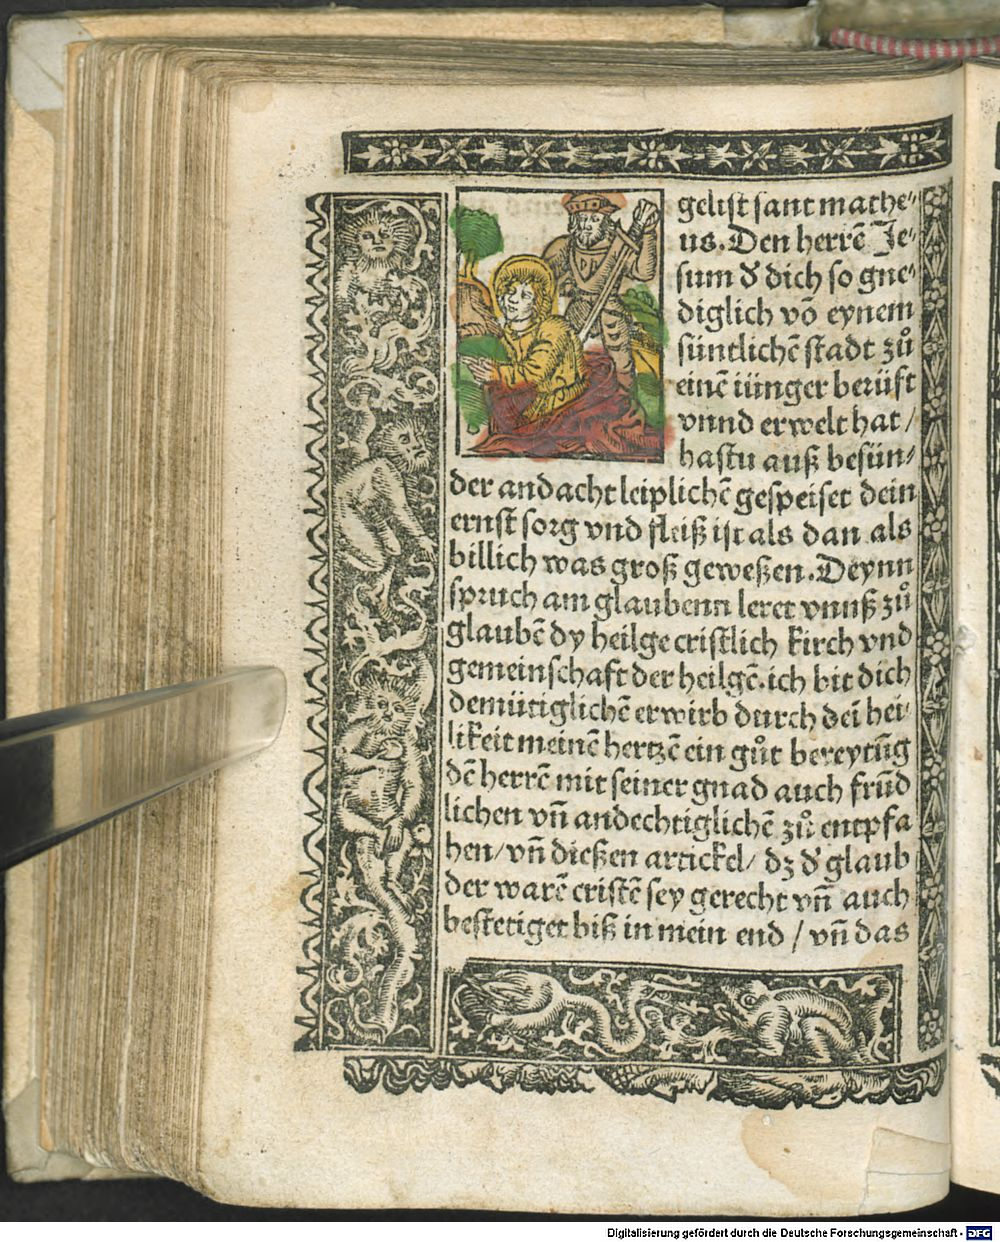 gelist sant mathe⸗
us. Den herrē Je⸗
sum d̕ dich so gne⸗
diglich vō eynem
süntlichē stadt zů
einē iünger berüft
vnnd erwelt hat /
hastu auß besün⸗
der andacht leiplichē gespeiset dein
ernst sorg vnd fleiß ist als dan als
billich was groß geweßen. Deynn
spruch am glaubenn leret vnnß zů
glaubē dy heilge cristlich kirch vnd
gemeinschaft der heilgē. ich bit dich
demütiglichē erwirb durch dei hei⸗
likeit meinē hertzē ein gůt bereytūg
dē herrē mit seiner gnad auch frūd
lichen vn̄ andechtiglichē zů entpfa
hen / vn̄ dießen artickel / dz d̕ glaub
der warē cristē sey gerecht vn̄ auch
bestetiget biß in mein end / vn̄ das
Digitalisierung gefördert durch die Deutsche Forschungsgemeinschaft - DFG